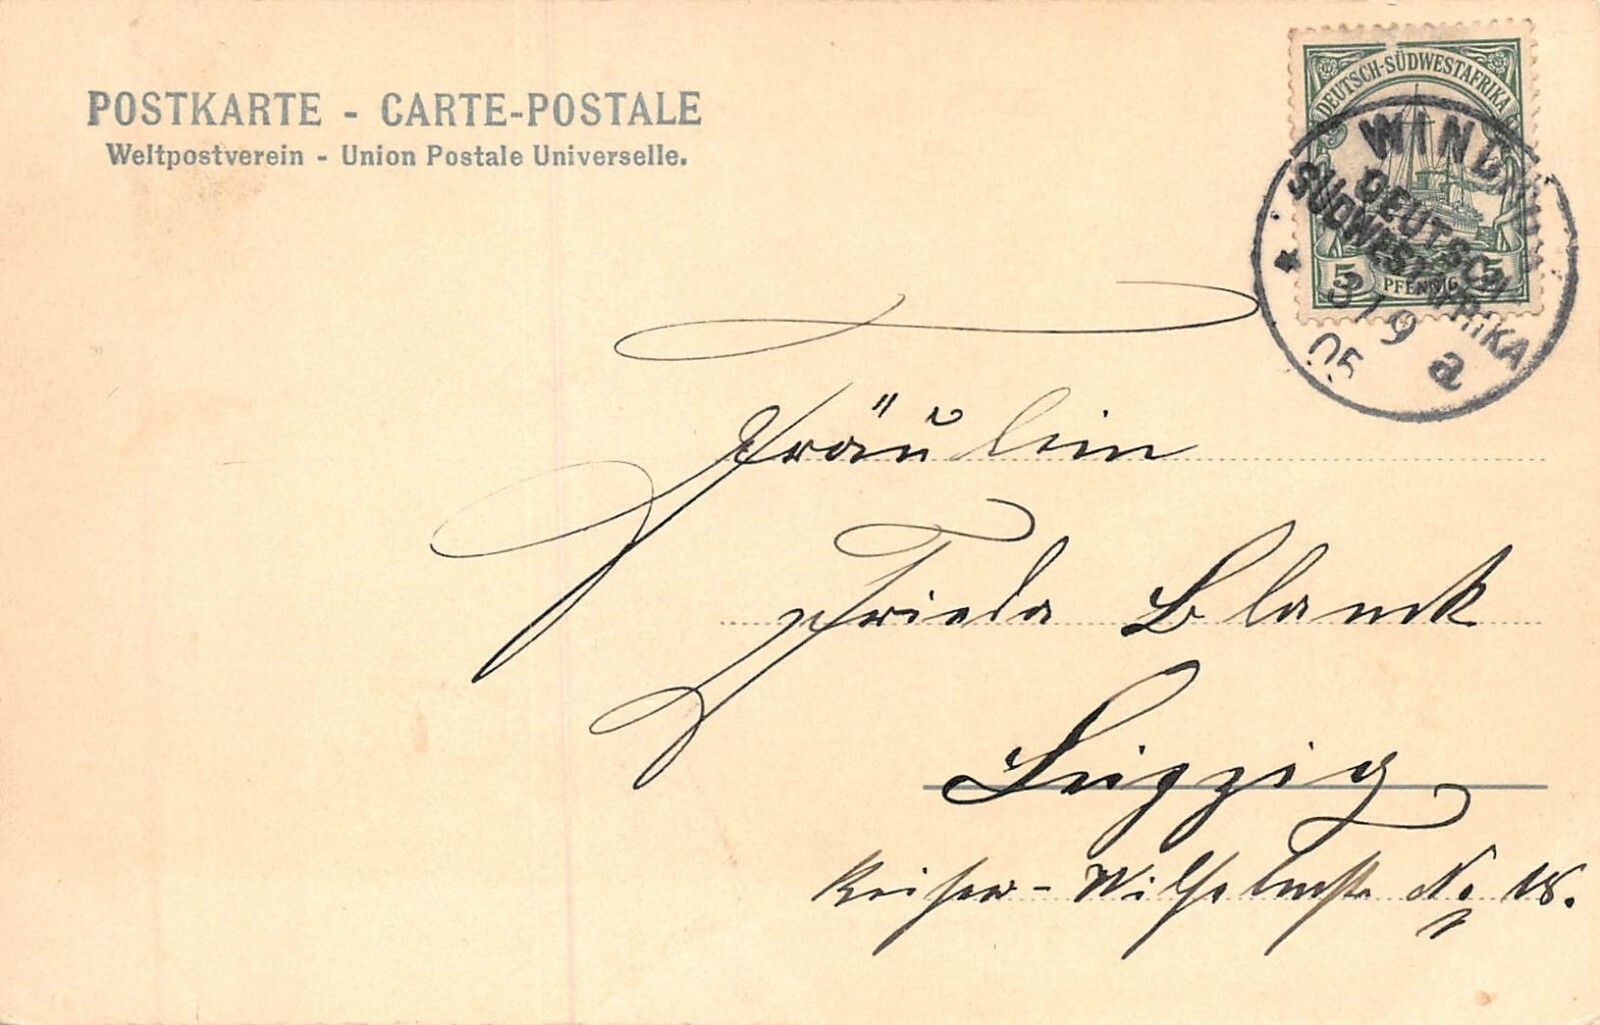 POSTKARTE - CARTE-POSTALE
Weltpostverein - Union Postale Universelle.
DEUTSCH-SÜDWESTAFRIKA
5 5
PFENNIG
WINDHUK
DEUTSCH
SÜDWESTAFRIKA
31 9
05 a
Fräulein
Frieda Blanck
Leipzig
Kaiser-Wilhelmstr. No 18.